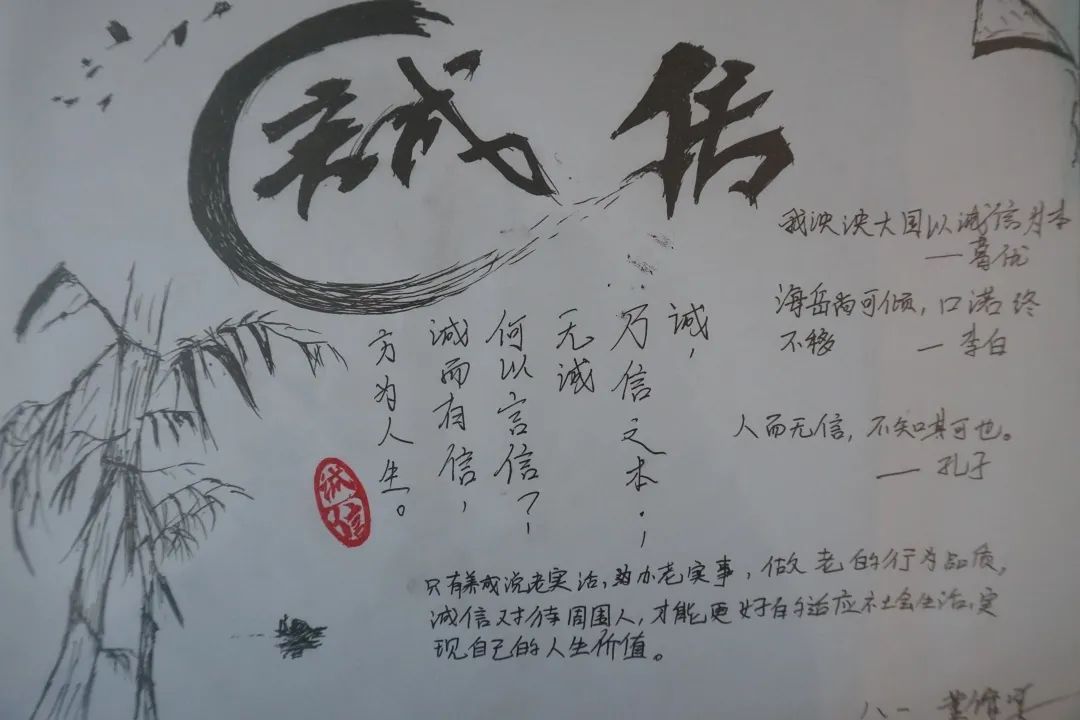 誠信
我泱泱大国以诚信为本
海岳尚可倾，口诺终
不移 — 李白
人而无信，不知其可也。
— 孔子
诚，
乃信之本；
无诚
何以言信？
诚而有信，
方为人生。
诚信
只有养成说老实话，办老实事，做老的行为品质，
诚信对待周围人，才能更好的适应社会生活，实
现自己的人生价值。
八一